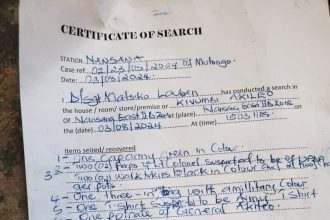 CERTIFICATE OF SEARCH
STATION. NANSANA
Case ref. 02/23/05/2024 Of Mutongo
Date: 03/08/2024
I D/Sgt Matsiko has conducted a search in
the house / room / store/premise or KIVUMBI AKILEO
Nansana East IIB Zone (place) Nansana East IIB Zone
on (the date) 03/08/2024 At (time). 1503 HRS
Items seized/ recovered
1- One Cap army Green in Colour
2- Two (02) Colonel suspected to be of
3- Two (02) Walk talkies black in Colour and
ger pots
4- One three-in bag with a military Colour
5- One T. Shirt suspected to be Army T Shirt
One potrate of General Akileo